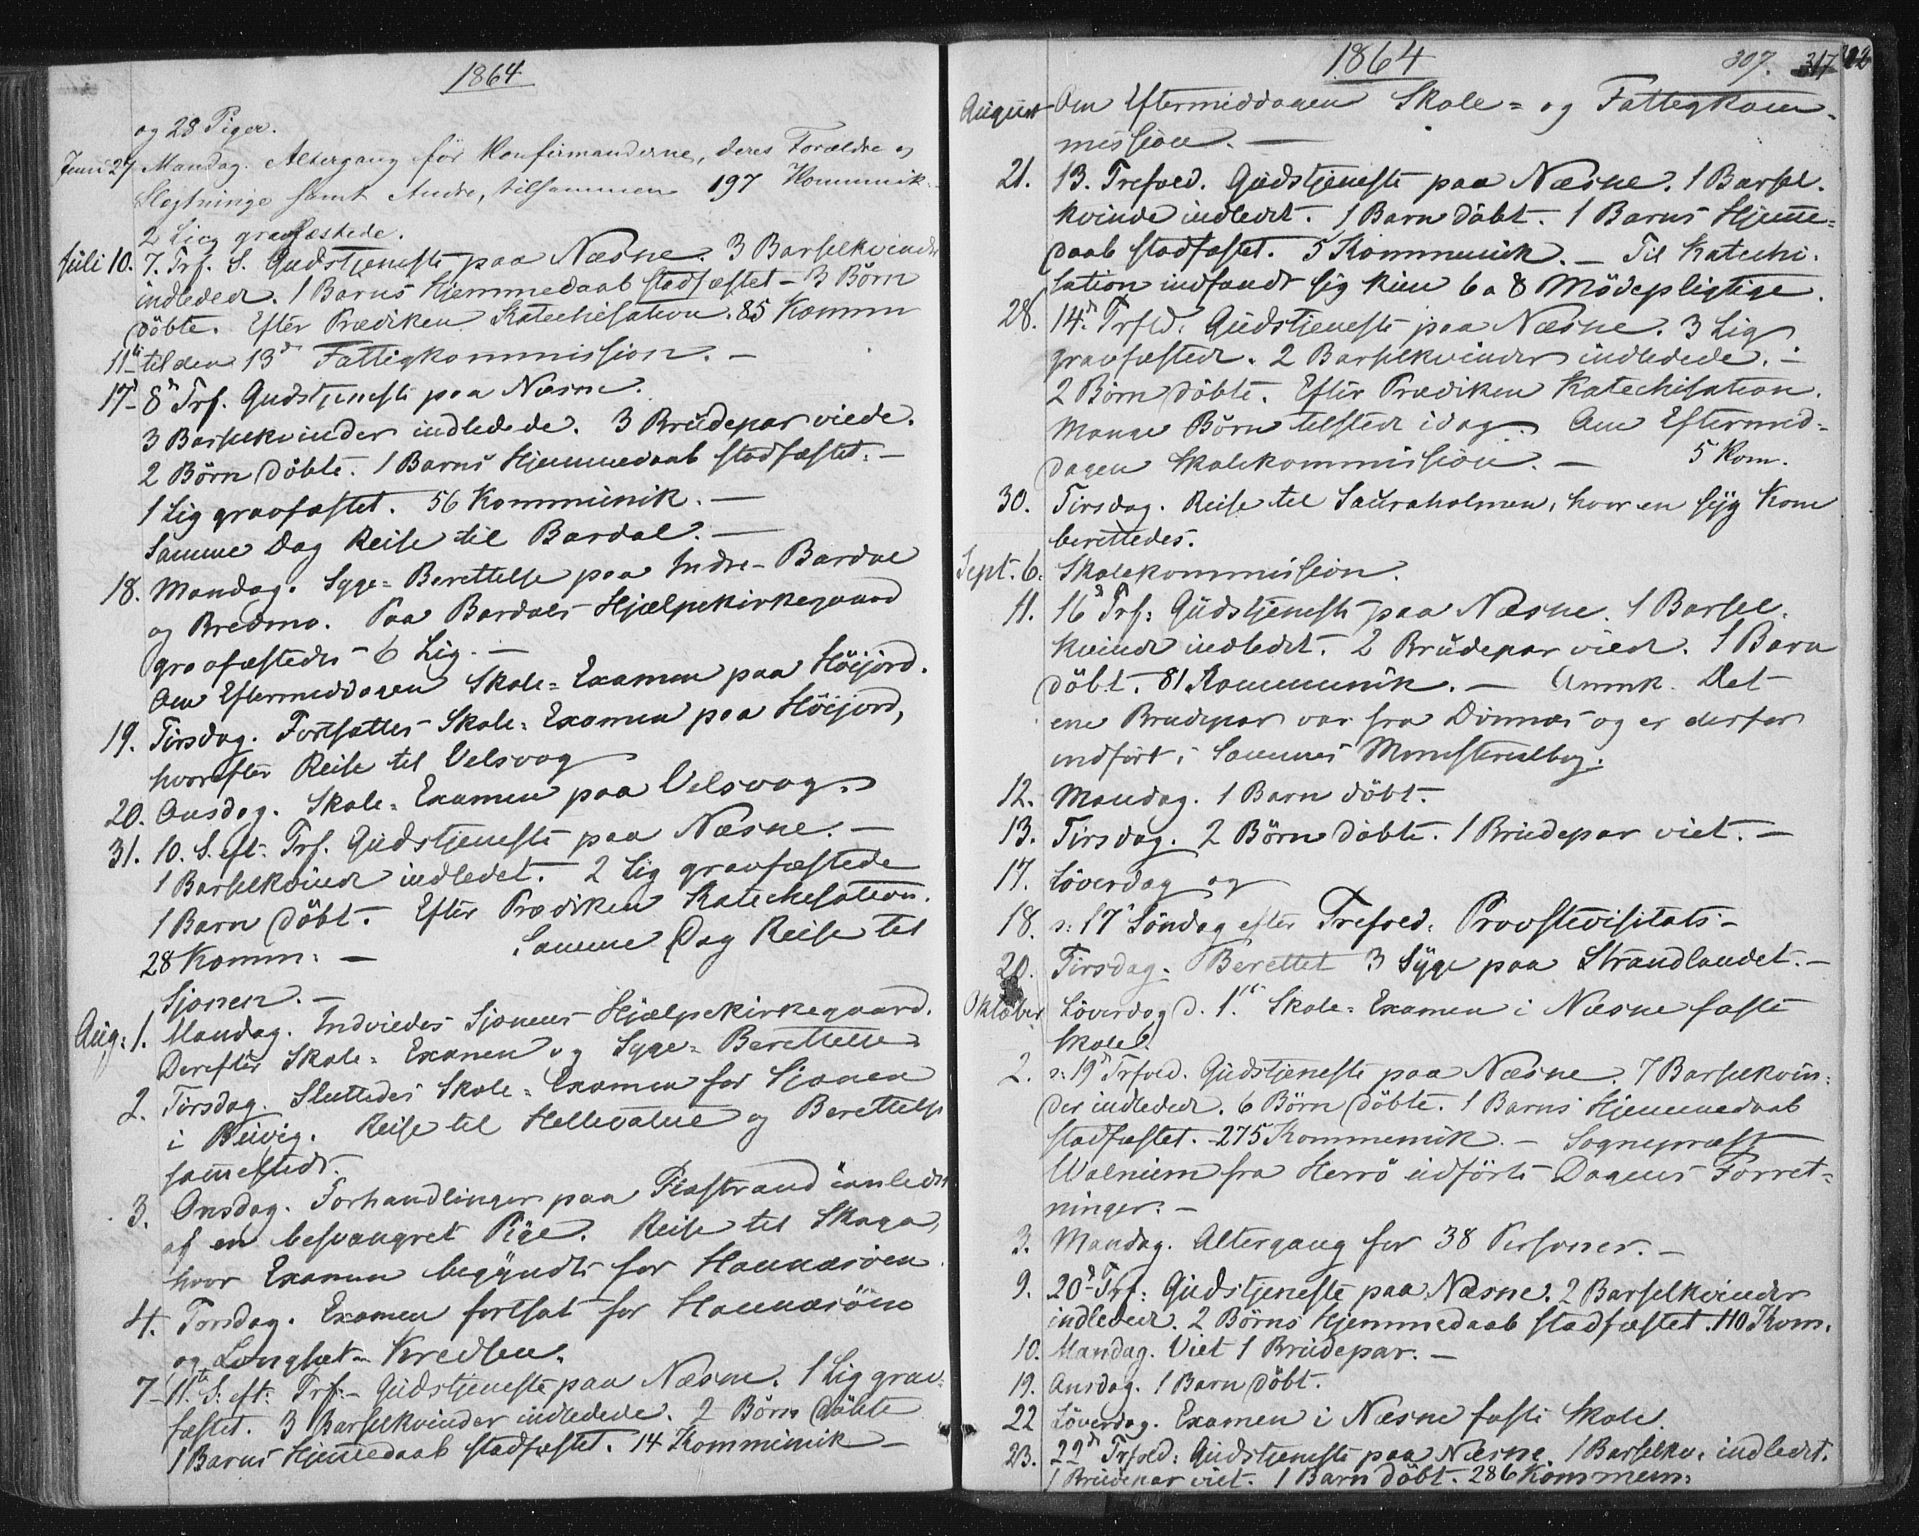 1864
og 28 Piger.
Juni 27 Mandag. Altergang för Konfirmanderne, deres Forældre og
Slegtninge samt Andre, tilsammen 197 Kommunik.
2 Lig gravfæstede.
Juli 10. 7. Trf. S. Gudstjeneste paa Næsne. 3 Barselkvinder
indledede. 1 Barns Hjemmedaab stadfæstet - 3 Börn
döbte. Efter Prædiken Katechisation. 85 Komm
11te til den 13de Fattigkommission. -
17- 8de Trf. Gudstjeneste paa Næsne.
3 Barselkvinder indledede. 3 Brudepar viede.
2 Börn döbte. 1 Barns Hjemmedaab stadfæstet. -
1 Lig gravfæstet. 56 Kommunik. -
Samme Dag Reise til Bardal. -
18. Mandag. Syge-Berettelse paa Indre-Bardal
og Bredmo. Paa Bardals Hjælpekirkegaard
gravfæstedes 6 Lig. -
Om Eftermiddagen Skole-Examen paa Höijord.
19. Tirsdag. Fortsattes Skole-Examen paa Höijord,
hvorefter Reise til Velsvog
20. Onsdag. Skole-Examen paa Velsvog.
31. 10. S. eft. Trf. Gudstjeneste paa Næsne. -
1 Barselkvinde indledet. 2 Lig gravfæstede
1 Barn döbt. Efter Prædiken Katechisation.
28 Komm. - Samme Dag Reise til
Sjonen. -
Aug: 1. Mandag. Indviedes Sjonens Hjælpekirkegaard.
Derefter Skole-Examen og Syge-Berettelse
2. Tirsdag. Sluttedes Skole-Examen for Sjonen
i Bevig. Reise til Hellevatne og Berettelse
sammesteds.
3. Onsdag. Forhandlinger paa Flostrand i anledn
af en besvangret Pige. Reise til Skaga,
hvor Examen begyndte for Hannæsöen.
4. Torsdag. Examen fortsat for Hannæsöen
og Langset-Kredsen.
7- 11te S: eft: Trf:- Gudstjeneste paa Næsne. 1 Lig grav-
fæstet. 3 Barselkvinder indledede. 2 Börn döbte
1 Barns Hjemmedaab stadfæstet. 14 Kommunik -
1864
307. 317
August Om Eftermiddagen Skole- og Fattigkom-
mission. -
21. 13. Trefold. Gudstjeneste paa Næsne. 1 Barsel-
kvinde indledet. 1 Barn döbt. 1 Barns Hjemme-
daab stadfæstet. 5 Kommunik. - Til Katechi-
sation indfandt sig kun 6 a 8 Mödepligtige.
28. 14de Trfld: Gudstjeneste paa Næsne. 3 Lig
gravfæstede. 2 Barselkvinder indledede. -
2 Börn döbte. Efter Prædiken Katechisation.
Mange Börn tilstede idag. Om Eftermid-
dagen Skolekommission. - 5 Kom.
30. Tirsdag. Reise til Sauraholmen, hvor en syg Kone
berettedes.
Sept. 6. Skolekommission.
11. 16de Trf: Gudstjeneste paa Næsne. 1 Barsel-
kvinde indledet. 2 Brudepar viede. 1 Barn
döbt. 81 Kommunik. - Anmk. Det
ene Brudepar var fra Dönnæs og er derfor
indfört i Sammes Ministerialbog.
12. Mandag. 1 Barn döbt.
13. Tirsdag. 2 Börn döbte. 1 Brudepar viet. -
17. Löverdag og
18. s: 17de Söndag efter Trefold. Provstevisitats -
20. Tirsdag. Berettet 3 Syge paa Strandlandet. -
Oktober Löverdag d. 1ste Skole-Examen i Næsne faste
Skole.
2. s: 19de Trfold. Gudstjeneste paa Næsne. 7 Barselkvin-
der indledede. 6 Börn döbte. 1 Barns Hjemmedaab
stadfæstet. 275 Kommunik. - Sognepræst
Walnum fra Herrö udförte Dagens Forret-
ninger. -
3. Mandag. Altergang for 38 Personer. -
9. 20de Trf: Gudstjeneste paa Næsne. 2 Barselkvinder
indledede. 2 Börns Hjemmedaab stadfæstet. 110 Kom.
10. Mandag. Viet 1 Brudepar. -
19. Onsdag. 1 Barn döbt.
22 Löverdag. Examen i Næsne faste Skole
23. 22de Trfold: Gudstjeneste paa Næsne. 1 Barselkv. indledet.
1 Brudepar viet. 1 Barn döbt. 286 Kommun: